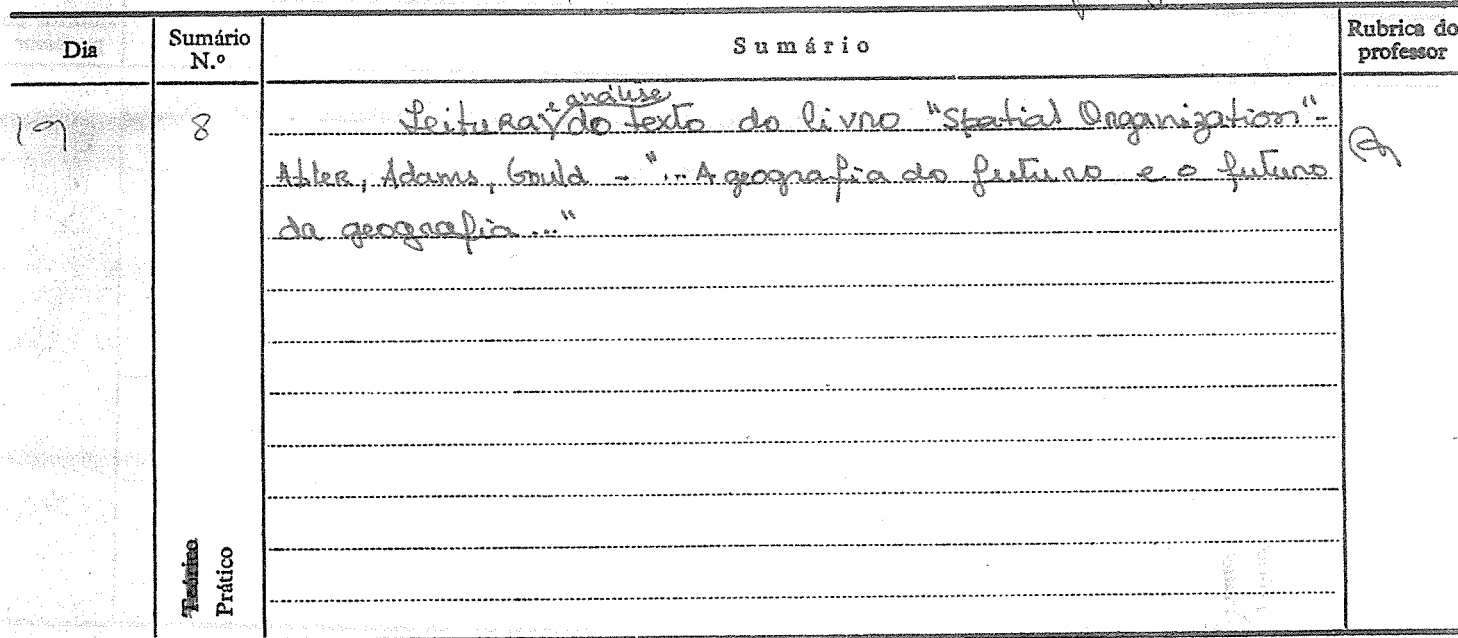 Dia
Sumário N.º
Sumário
Rubrica do professor
19
8
Leitura e análise do texto do livro "Spatial Organization" -
Abler, Adams, Gould - "... A geografia do futuro e o futuro
da geografia ..."
Teórico
Prático